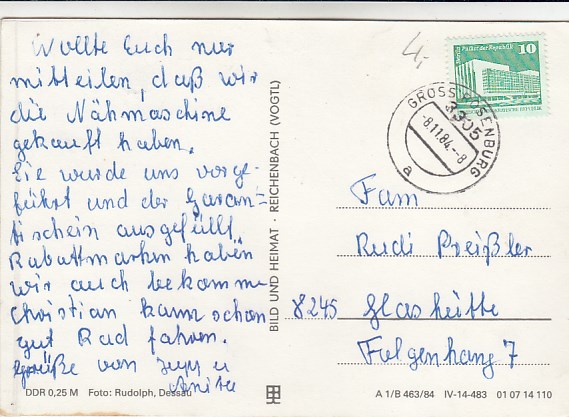 Wollte Euch nur
mitteilen, daß wir
die Nähmaschine
gekauft haben.
Sie wurde uns vorge-
führt und der Garan-
tischein ausgefüllt.
Rabattmarken haben
wir auch bekomm
Christian kann schon
gut Rad fahren.
Grüße von
Anita
DDR 0,25 M Foto: Rudolph, Dessau
BILD UND HEIMAT · REICHENBACH (VOGTL)
4,-
Berlin Palast der Republik 10
GROSS ROSENBURG
3305
-8.11.84.-8
a
Fam
Rudi Preißler
8245 Glashütte
Folgenhang 7
A 1/B 463/84 IV-14-483 01 07 14 110